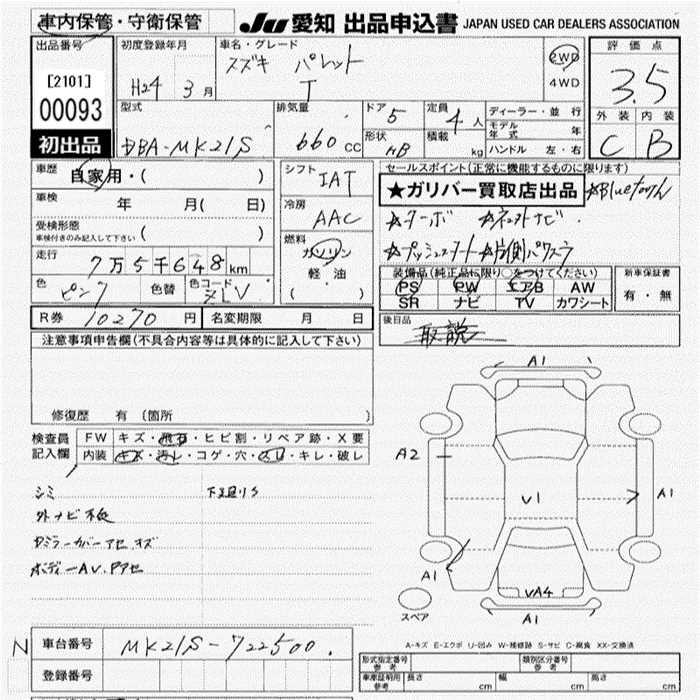 車内保管・守衛保管
JU 愛知 出品申込書 JAPAN USED CAR DEALERS ASSOCIATION
出品番号
[2101]
00093
初出品
初度登録年月
H24 3月
車名・グレード
スズキ パレット
T
2WD
4WD
評価点
3.5
外装 内装
C B
型式
DBA-MK21S
排気量
660 CC
ドア 5
形状 HB
定員 4人
積載 kg
ディーラー・並行
モデル年式 年
ハンドル 左・右
車歴 自家用・( )
車検 年 月( 日)
受検形態
車検付きのみ記入して下さい ( )
走行 7万5千648km
色 ピンク 色替 色コード ZLV
シフト IAT
冷房 AAC
燃料
ガソリン
軽油
( )
セールスポイント(正常に機能するものに限ります)
★ガリバー買取店出品 ☆Bluetooth
☆ターボ ☆ネットナビ
☆プッシュスタート ☆片側パワスラ
装備品(純正品に限り○をつけてください)
PS PW エアB AW
SR ナビ TV カワシート
新車保証書
有・無
後日品
取説
R券 10270 円 名変期限 月 日
注意事項申告欄(不具合内容等は具体的に記入して下さい)
修復歴 有 〔箇所 〕
検査員記入欄
FW キズ・飛石・ヒビ割・リペア跡・X要
内装 キズ・汚レ・コゲ・穴・スレ・キレ・破レ
シミ 下廻りS
外ナビ不良
ドミラーカバーアセ、キズ
ボディーAV、Pアセ
A1
A2
V1
A1
A1
VA4
A1
スペア
A-キズ E-エクボ U-凹み W-補修跡 S-サビ C-腐食 XX-交換済
N 車台番号 MK21S-722500
登録番号
形式指定番号 参考
類別区分番号 参考
車庫証明用 参考 長さ cm 幅 cm 高さ cm